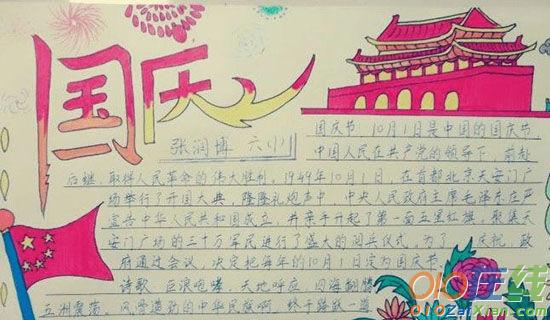 国庆
张润博 六(1)
国庆节，10月1日是中国的国庆节，
中国人民在共产党的领导下，前赴
后继，取得人民革命的伟大胜利，1949年10月1日，在首都北京天安门广
场举行了开国大典，隆隆礼炮声中，中央人民政府主席毛泽东庄严
宣告中华人民共和国成立，并亲手升起了第一面五星红旗，聚集天
安门广场的三十万军民进行了盛大的阅兵仪式，为了 庆祝，政
府通过会议，决定把每年的10月1日定为国庆节。
诗歌 巨浪咆哮，天地呼应 四海翻腾
五洲震荡，风雷激动的中华民族啊 终于踏跃一
在线
ZaiXian.com